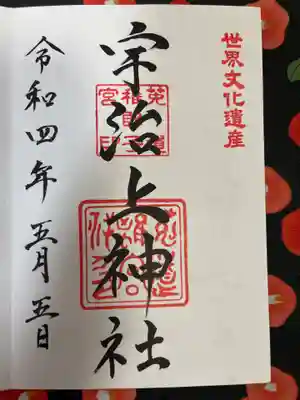 世界文化遺産
宇治上神社
令和四年五月五日